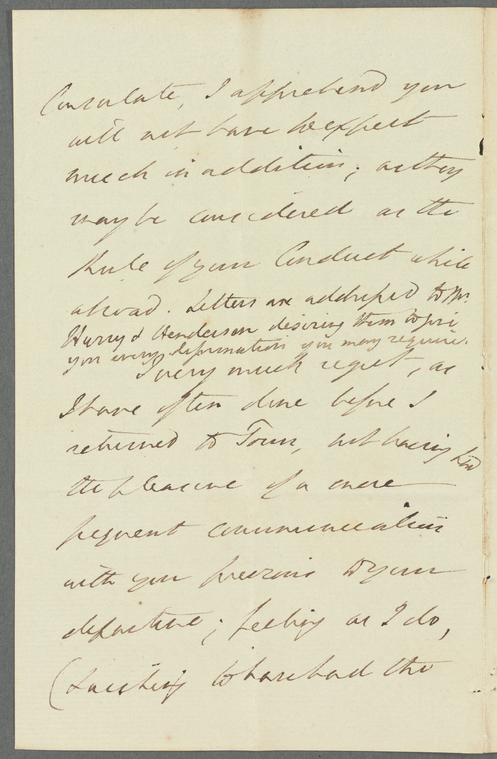 Consulate, I apprehend you
will not have to expect
much in addition; as they
may be considered as the
Rule of your Conduct while
abroad. Letters are addressed to Mr.
Hurry & Henderson desiring them to give
you every information you may require.
I very much regret, as
I have often done before I
returned to Town, not having had
the pleasure of a more
frequent communication
with you previous to your
departure; feeling as I do,
( to have had the